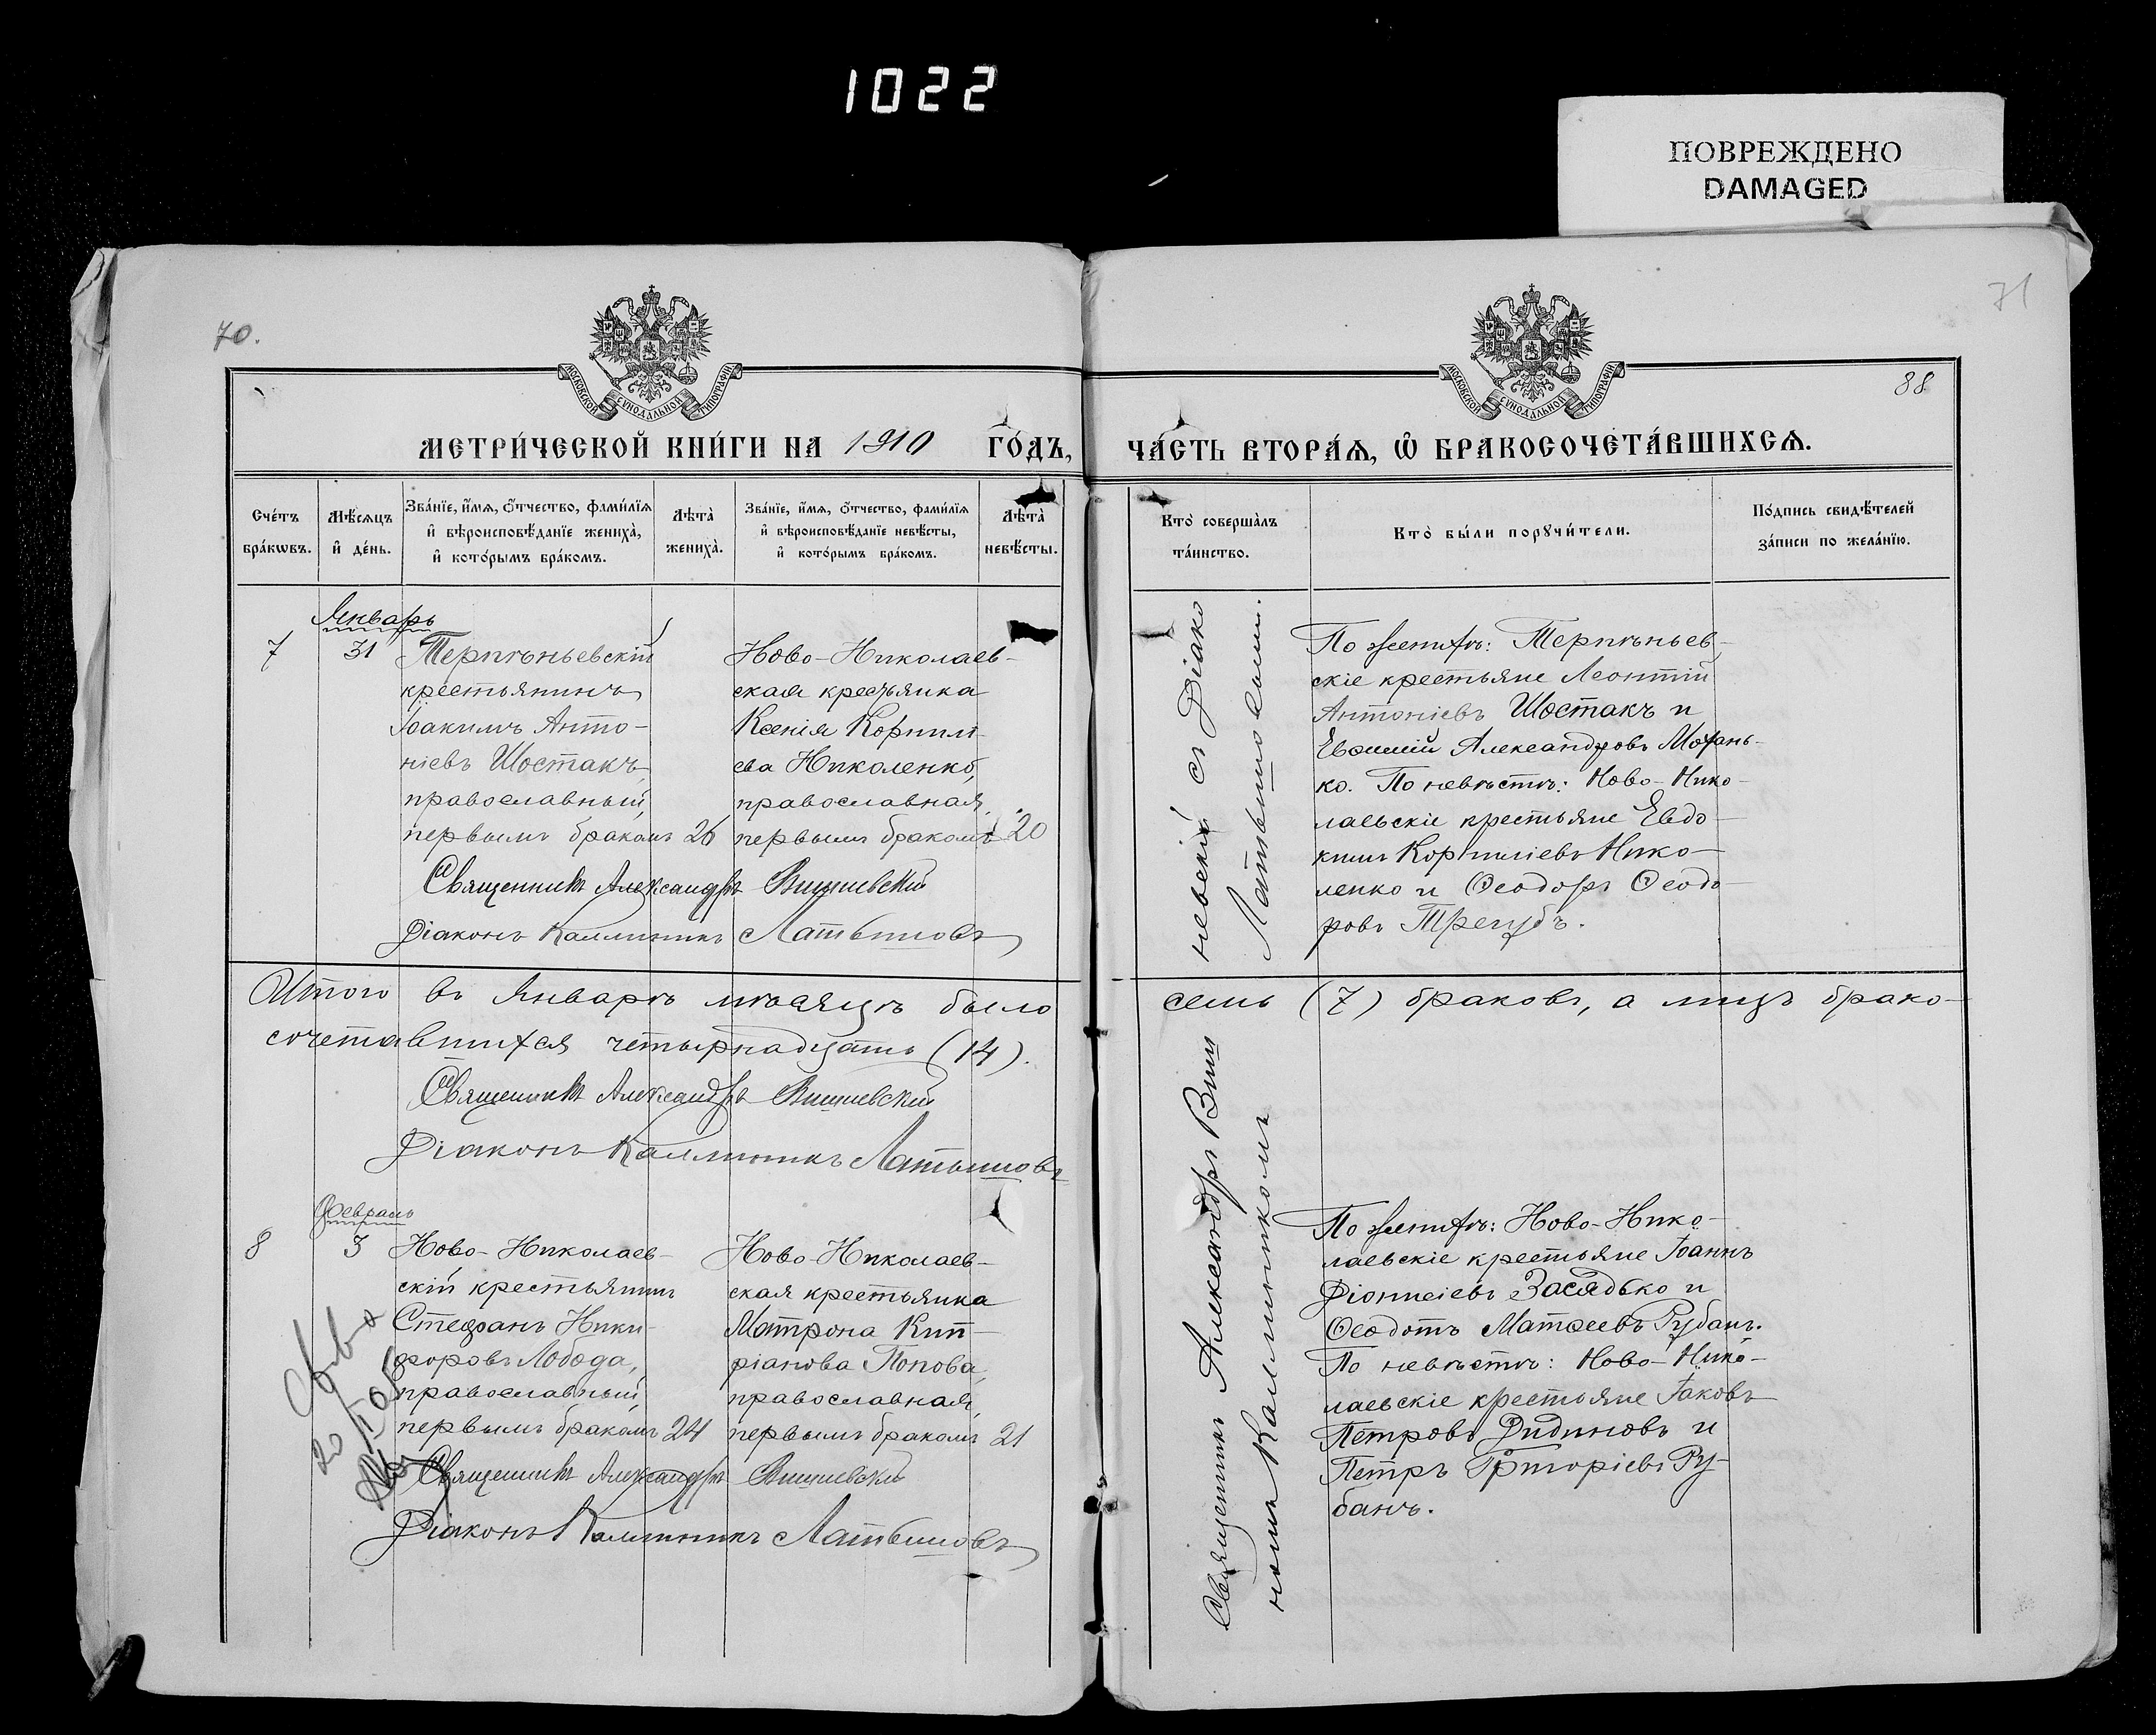 1022
ПОВРЕЖДЕНО
DAMAGED
70.
71
88
МОСКОВСКОЙ СѴНОДАЛЬНОЙ ТИПОГРАФІИ
МОСКОВСКОЙ СѴНОДАЛЬНОЙ ТИПОГРАФІИ
МЕТРИ́ЧЕСКОЙ КНИ́ГИ НА 1910 ГО́ДЪ,
ЧА́СТЬ ВТОРА́Ѧ, Ѽ БРАКОСОЧЕТА́ВШИХСѦ.
Сче́тъ
бра́кѡвъ.
Мѣ́сѧцъ
и҆ де́нь.
Зва́нїе, и҆́мѧ, ѻ҆́тчество, фами́лїѧ
и҆ вѣроисповѣ́данїе жениха̀,
и҆ кото́рымъ бра́комъ.
Лѣта̀
жениха̀.
Зва́нїе, и҆́мѧ, ѻ҆́тчество, фами́лїѧ
и҆ вѣроисповѣ́данїе невѣ́сты,
и҆ кото́рымъ бра́комъ.
Лѣта̀
невѣ́сты.
Кто̀ соверша́лъ
та́инство.
Кто̀ бы́ли порꙋчи́тели.
По́дпись свидѣ́телей
за́писи по жела́нїю.
Январь
7
31
Терпѣньевскій
крестьянинъ
Іоакимъ Анто-
ніевъ Шостакъ,
православный,
первымъ бракомъ
26
Ново-Николаев-
ская крестьянка
Ксенія Корнилі-
ева Николенко,
православная,
первымъ бракомъ
20
Священникъ Александръ Вишневскій
Діаконъ Каллиникъ Латышовъ
По женихѣ: Терпѣньев-
скіе крестьяне Леонтій
Антоніевъ Шостакъ и
Евфимій Александровъ Мохань-
ко. По невѣстѣ: Ново-Нико-
лаевскіе крестьяне Евдо-
кимъ Корниліевъ Нико-
ленко и Ѳеодоръ Ѳеодо-
ровъ Трегубъ.
Итого въ Январѣ мѣсяцѣ было семь (7) браковъ, а лицъ брако-
сочетавшихся четырнадцать (14).
Священникъ Александръ Вишневскій
Діаконъ Каллиникъ Латышовъ
Февраль
8
3
Ново-Николаев-
скій крестьянинъ
Стефанъ Ники-
форовъ Лобода,
православный,
первымъ бракомъ
24
Ново-Николаев-
ская крестьянка
Матрона Кип-
ріанова Попова,
православная,
первымъ бракомъ
21
Священникъ Александръ Вишневскій
Діаконъ Каллиникъ Латышовъ
Священникъ Александръ Виш
невскій съ Діако
номъ Каллиникомъ
Латышовымъ.
По женихѣ: Ново-Нико-
лаевскіе крестьяне Іоаннъ
Діонисіевъ Засядько и
Ѳеодотъ Матѳеевъ Рубанъ.
По невѣстѣ: Ново-Нико-
лаевскіе крестьяне Іаковъ
Петровъ Дидиновъ и
Петръ Григоріевъ Ру-
банъ.